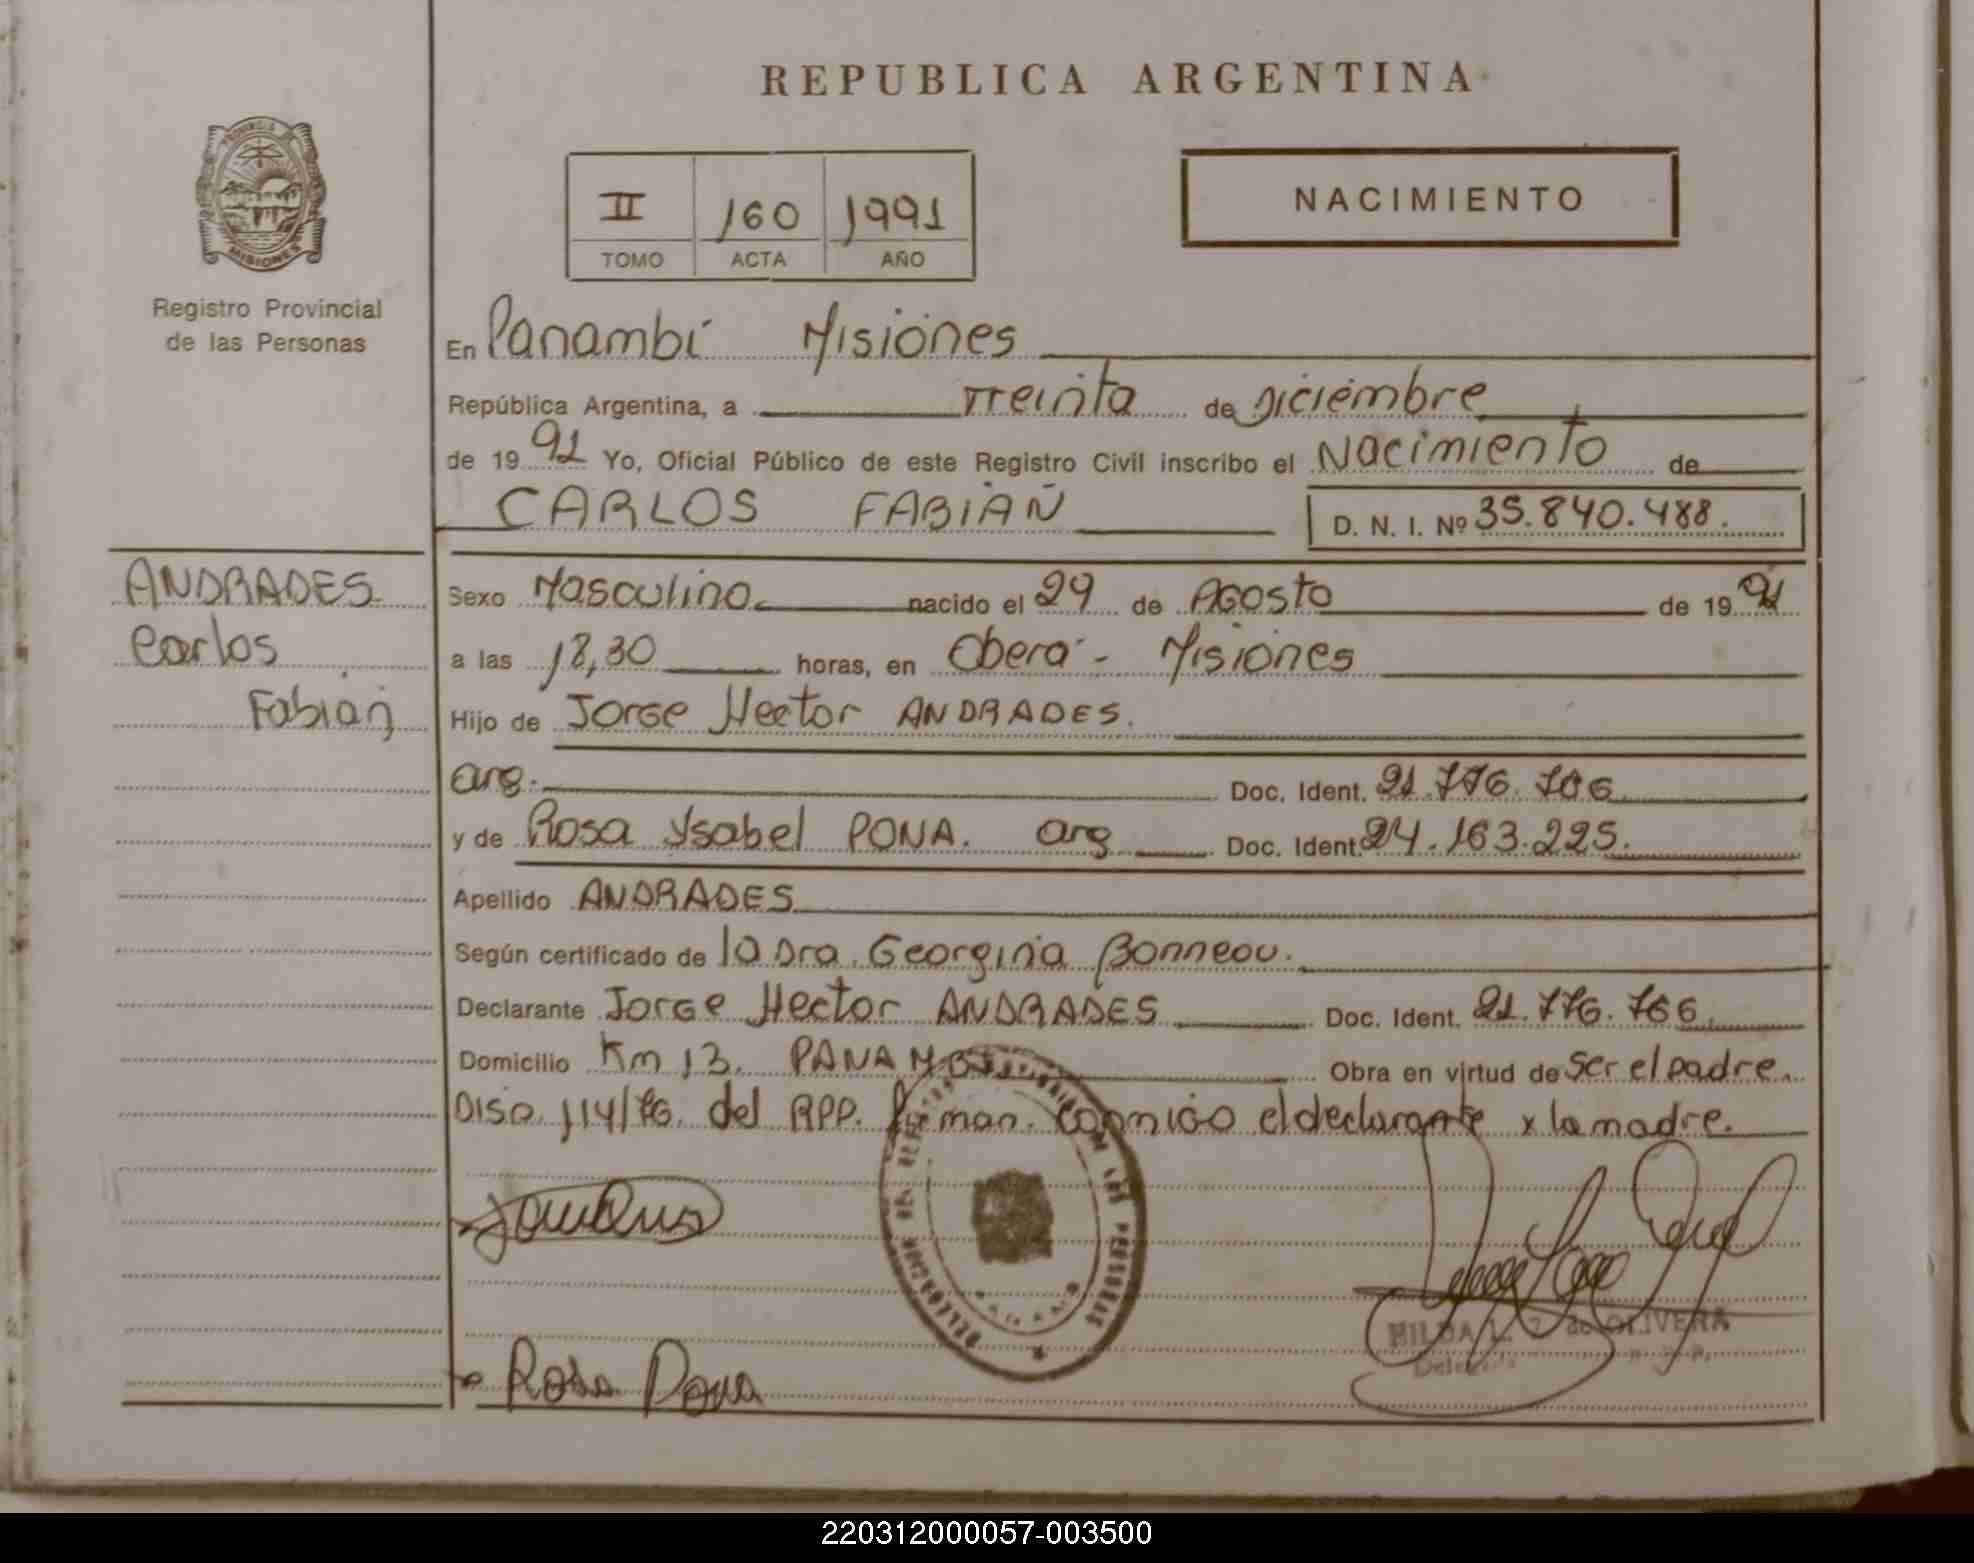 REPUBLICA ARGENTINA
PROVINCIA
MISIONES
Registro Provincial
de las Personas
II 160 1991
TOMO ACTA AÑO
NACIMIENTO
En Panambí Misiones
República Argentina, a Treinta de Diciembre
de 19 91 Yo, Oficial Público de este Registro Civil inscribo el Nacimiento de
CARLOS FABIAN
D. N. I. Nº 35.840.488.
ANDRADES
Carlos
Fabián
Sexo Masculino nacido el 29 de Agosto de 19 91
a las 18,30 horas, en Oberá - Misiones
Hijo de Jorge Hector ANDRADES.
arg. Doc. Ident. 21.776.766
y de Rosa Ysabel PONA. arg Doc. Ident. 24.163.225.
Apellido ANDRADES
Según certificado de la Dra. Georgina Bonneou.
Declarante Jorge Hector ANDRADES Doc. Ident. 21.776.766
Domicilio Km 13. PANAMBI Obra en virtud de ser el padre.
Disp. 114/76. del RPP. Firman. conmigo el declarante x la madre.
Rosa Pona
HILDA L. Z. de OLIVERA
220312000057-003500